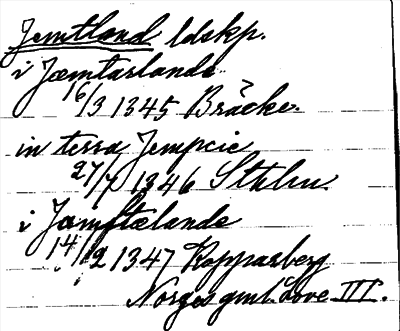 Jemtland ldskp.
i Jæmtarlande
16/3 1345 Bräcke.
in terra Jempcie
27/7 1346 Sthlm
i Jæmftælande
14/12 1347 Kopparberg
Norges gml. Love III.